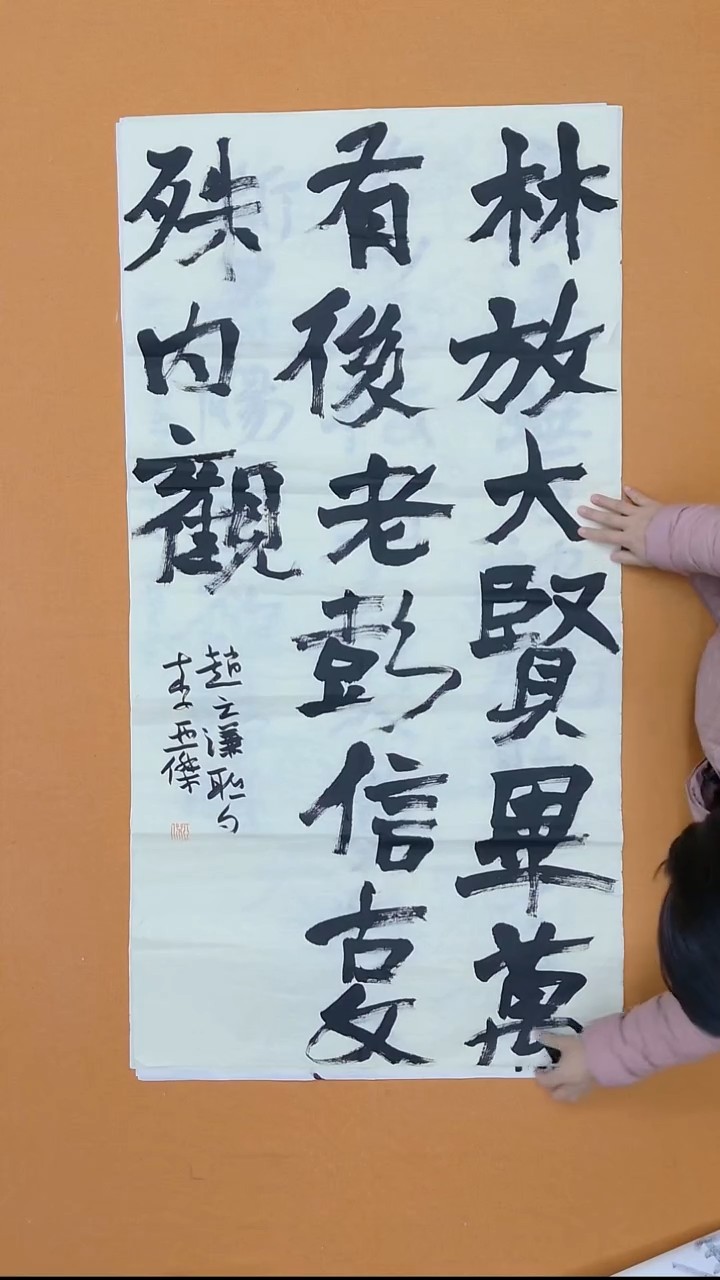 林放大賢畢萬
有後老彭信古文
殊内觀
趙之謙聯句
李亞傑